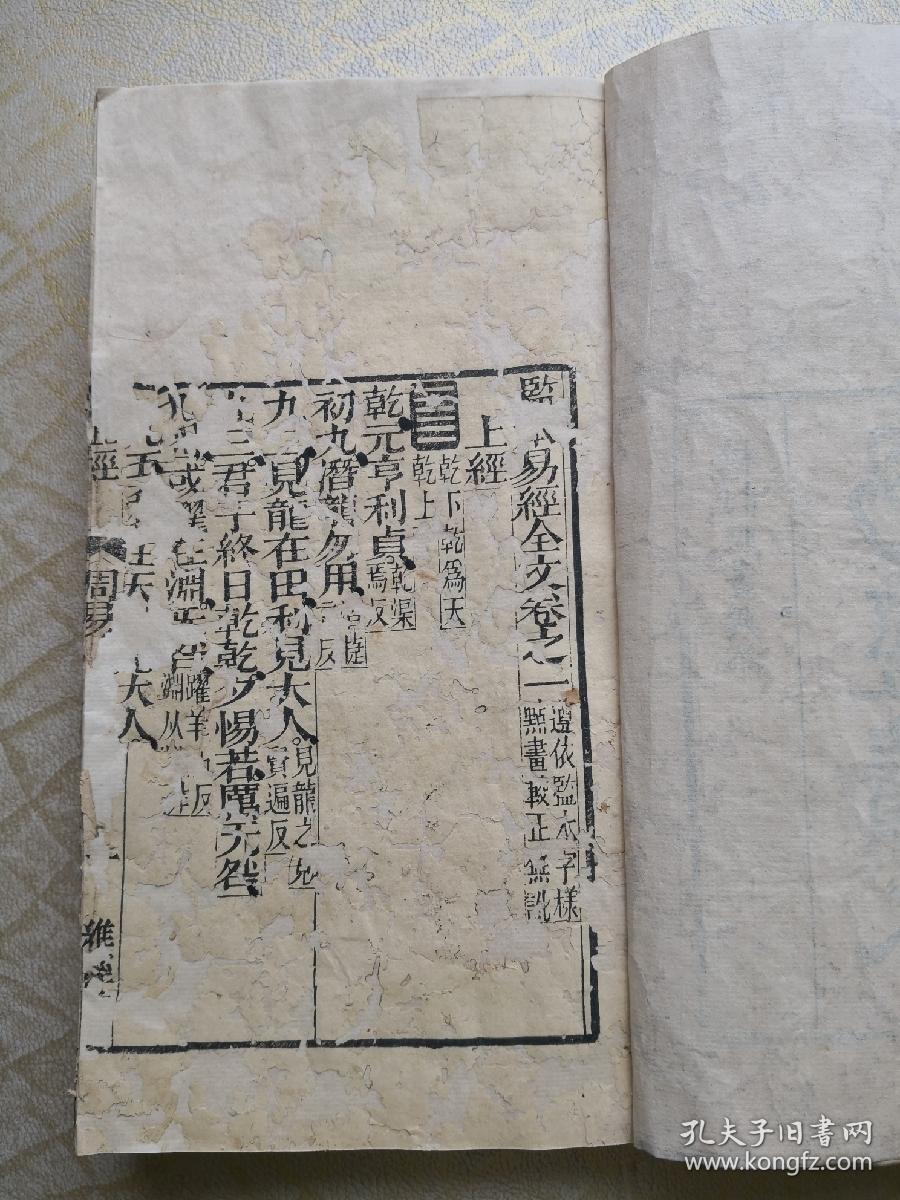 監 易經全文卷之一 遵依監本字樣
點畫較正無訛
上經
乾下乾爲天
乾上
乾元亨利貞 乾渠
焉反
初九潛龍勿用 反
九 見龍在田利見大人 見龍之見
賢遍反
九三君子終日乾乾夕惕若厲无咎
九 或躍在淵无咎 躍羊 反
淵从
九五 在天 大人
上經 周易
孔夫子旧书网
www.kongfz.com